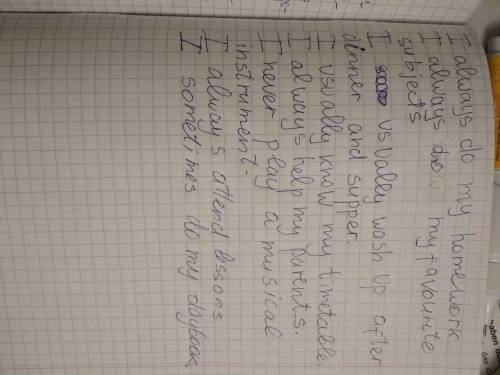 I always do my homework
I always do my favourite
subjects.
I usually wash up after
dinner and supper.
I usually know my timetable.
I always help my parents.
I never play a musical
instrument.
I always attend lessons
I sometimes do my daybook,